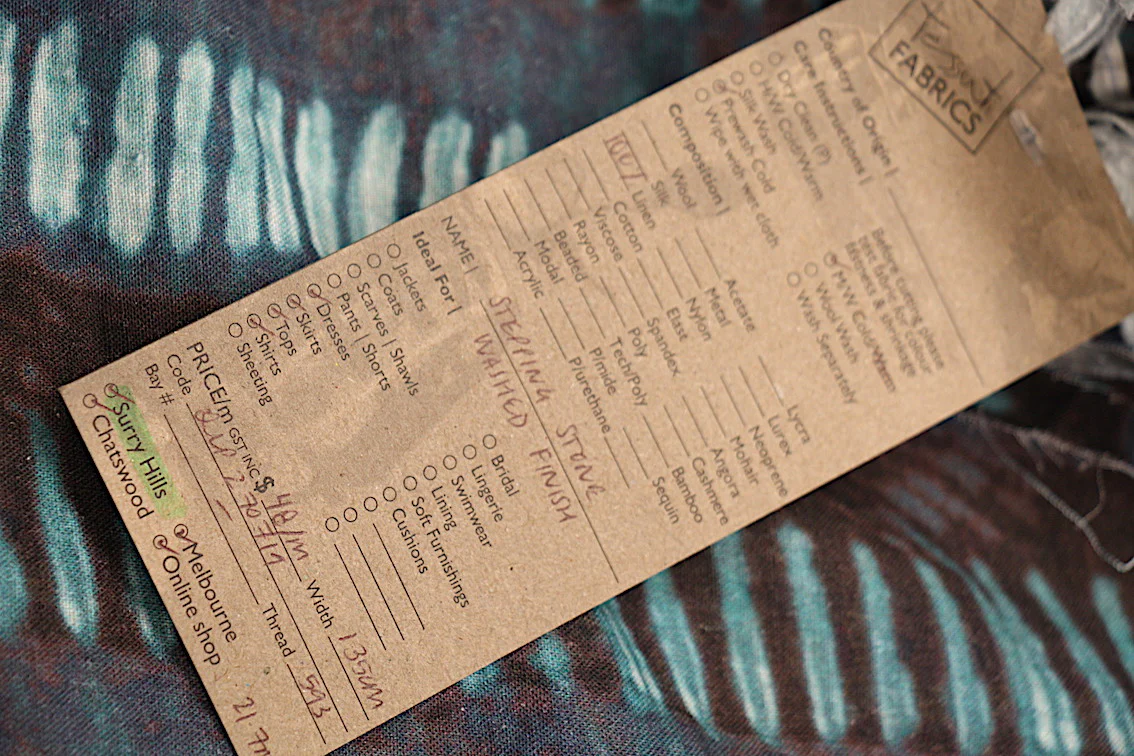 Tessuti
FABRICS
Country of Origin |
Care Instructions |
Dry Clean (P)
H/W Cold/Warm
Silk Wash
Prewash Cold
Wipe with wet cloth
Before cutting please
test fabric for colour
fastness & shrinkage
M/W Cold/Warm
Wool Wash
Wash Separately
Composition |
Wool
Silk
100% Linen
Cotton
Viscose
Rayon
Beaded
Modal
Acrylic
Acetate
Metal
Nylon
Elast
Spandex
Poly
Tech/Poly
Pimide
Plurethane
Lycra
Lurex
Neoprene
Mohair
Angora
Cashmere
Bamboo
Sequin
NAME | STEPPING STONE
WASHED FINISH
Ideal For |
Jackets
Coats
Scarves | Shawls
Pants | Shorts
Dresses
Skirts
Tops
Shirts
Sheeting
Bridal
Lingerie
Swimwear
Lining
Soft Furnishings
Cushions
PRICE/m GST INC. $ 48/m Width 135cm
Code
Bay # Thread 593
Surry Hills
Chatswood
Melbourne
Online shop